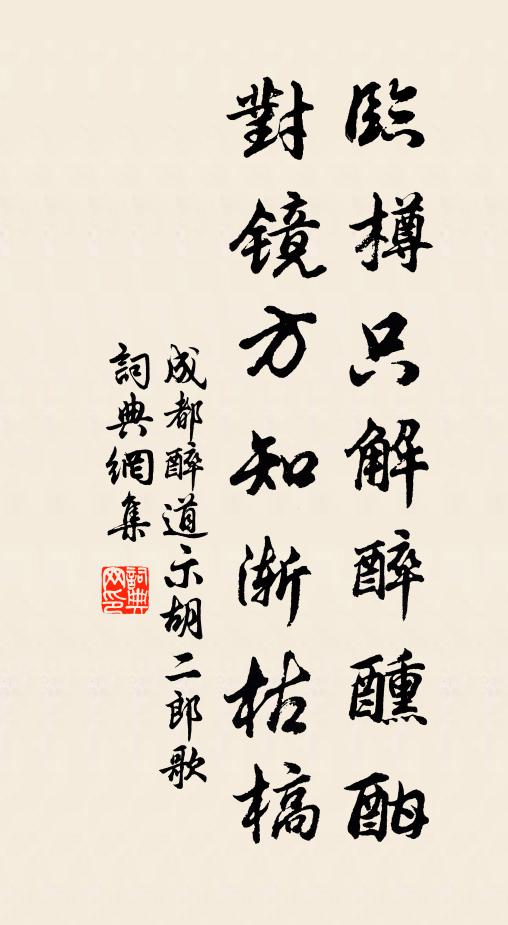 臨樽只解醉醺酣
對镜方知渐枯槁
成都醉道示胡二郎歌
詞典網集
詞典网印